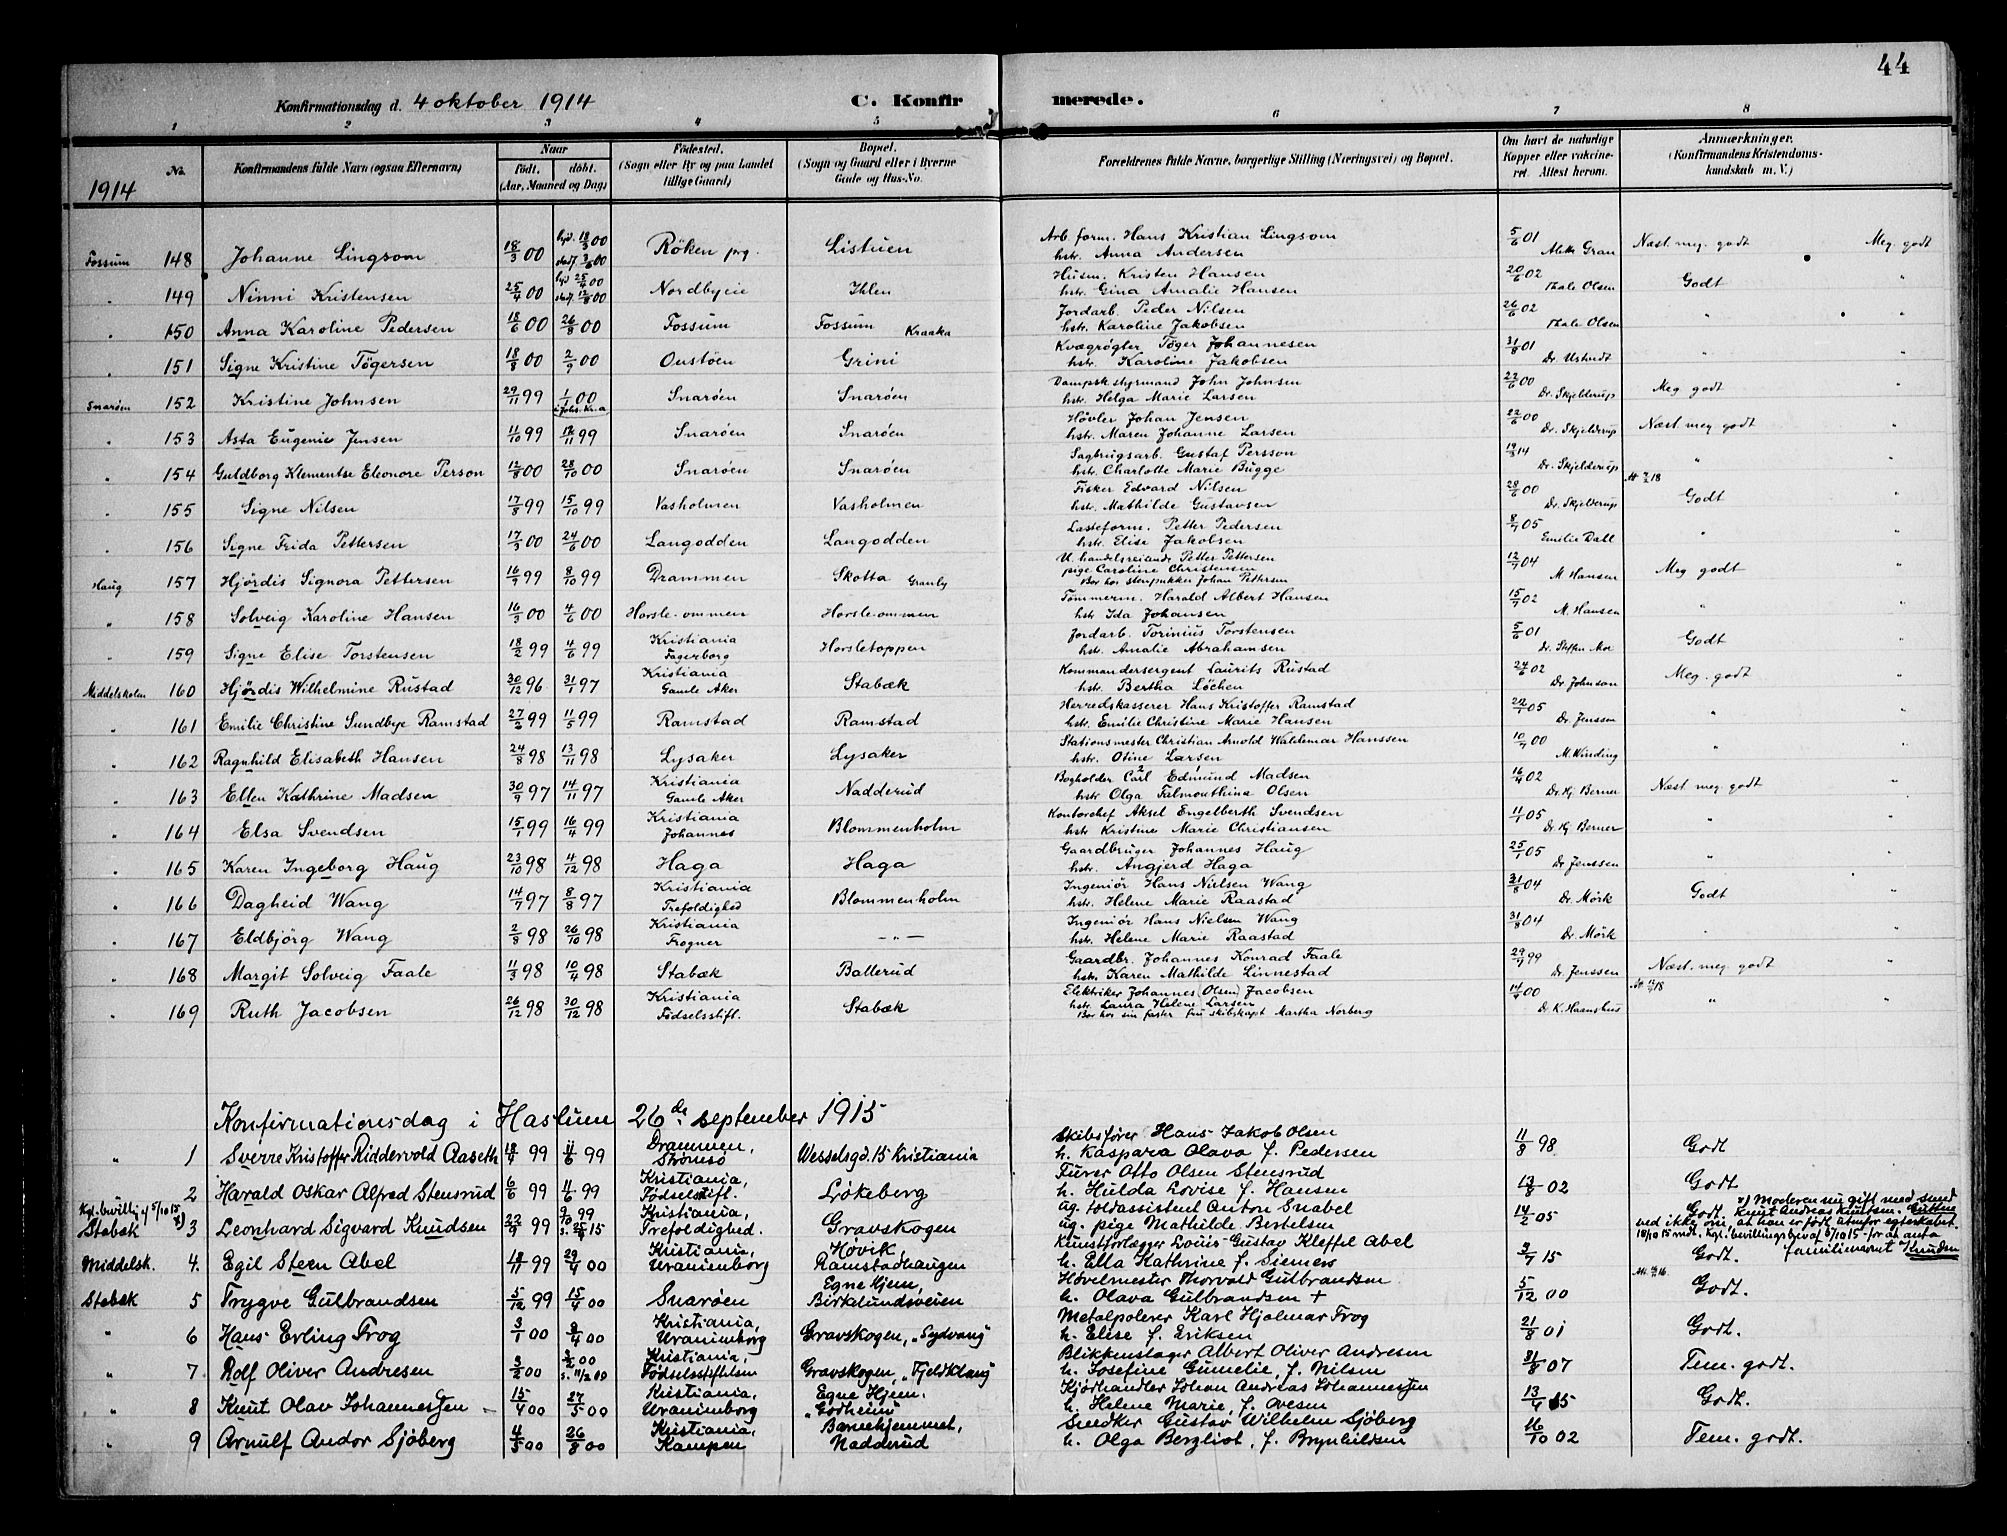 44
Konfirmationsdag d. 4 oktober 1914 C. Konfirmerede.
1 2 3 4 5 6 7 8
1914 No. Konfirmandens fulde Navn (ogsaa Efternavn) Naar født. døbt. (Aar, Maaned og Dag) Fødested. (Sogn eller By og paa Landet tillige Gaard) Bopæl. (Sogn og Gaard eller i Byerne Gade og Hus-No. Forældrenes fulde Navne, borgerlige Stilling (Næringsvei) og Bopæl. Om havt de naturlige Kopper eller vakcineret. Attest herom. Anmærkninger. (Konfirmandens Kristendomskundskab m. V.)
Fossum 148 Johanne Lingsom 18/3 00 hjd. 18/3 00 stadf. 3/6 00 Röken prg. Listuen Arb. form. Hans Kristian Lingsom hstr. Anna Andersen 5/6 01 Alette Gran Næst meg. godt Meg. godt
" 149 Ninni Kristensen 25/4 00 hjd 25/4 00 stadf. 12/8 00 Nordbyeie Ihlen Husm. Kristen Hansen hstr. Gina Amalie Hansen 20/6 02 Thale Olsen Godt "
" 150 Anna Karoline Pedersen 18/6 00 26/8 00 Fossum Fossum Kraaka Jordarb. Peder Nilsen hstr. Karoline Jakobsen 26/6 02 Thale Olsen " "
" 151 Signe Kristine Tögersen 18/8 00 2/9 00 Oustöen Grini Kvægrögter Töger Johannesen hstr. Karoline Jakobsen 31/8 01 Dr. Ustvedt " "
Snaröen 152 Kristine Johnsen 29/11 99 1/1 00 i Johs. Kr.a Snaröen Snaröen Dampsk.styrmand John Johnsen hstr. Helga Marie Larsen 22/6 00 Dr. Skjelderup Meg godt "
" 153 Asta Eugenie Jensen 11/10 99 12/11 99 Snaröen Snaröen Hövler Johan Jensen hstr. Maren Johanne Larsen 22/6 00 Dr. Skjelderup Næst meg godt "
" 154 Guldborg Klementse Eleonore Person 12/8 00 28/10 00 Snaröen Snaröen Sagbrugsarb. Gustaf Persson hstr. Charlotte Marie Bugge 19/3 14 Dr. Skjelderup " "
" 155 Signe Nilsen 17/8 99 15/10 99 Vasholmen Vasholmen Fisker Edvard Nilsen hstr. Mathilde Gustavsen 28/6 00 Dr. Skjelderup Godt "
" 156 Signe Frida Pettersen 17/3 00 24/6 00 Langodden Langodden Lasteform. Petter Pedersen hstr. Elise Jakobsen 8/7 05 Emilie Dall " "
Haug 157 Hjördis Signora Pettersen 16/7 99 8/10 99 Drammen Skotta Granly U. handelsreisande Petter Pettersen pige Caroline Christensen Bor hos stenpukker Johan Pettersen 12/7 04 M. Hansen Meg godt "
" 158 Solveig Karoline Hansen 16/3 00 4/6 00 Horsle-ommen Horsle-ommen Tömmerm. Harald Albert Hansen hstr. Ida Johansen 15/7 02 M. Hansen " "
" 159 Signe Elise Torstensen 18/2 99 4/6 99 Kristiania Fagerborg Horsletoppen Jordarb. Torinius Torstensen hstr. Amalie Abrahamsen 5/6 01 Dr. Steffen Moe Godt "
Middelskolen 160 Hjördis Wilhelmine Rustad 30/12 96 31/1 97 Kristiania Gamle Aker Stabæk Kommandersergent Laurits Rustad hstr. Bertha Löchen 24/6 02 Dr. Johnson Meg. godt "
" 161 Emilie Christine Sundbye Ramstad 27/2 99 11/5 99 Ramstad Ramstad Herredskasserer Hans Kristoffer Ramstad hstr. Emilie Christine Marie Hansen 22/1 05 Dr. Jenssen " "
" 162 Ragnhild Elisabeth Hansen 24/8 98 13/11 98 Lysaker Lysaker Stationsmester Christian Arnold Waldemar Hanssen hstr. Otine Larsen 10/7 00 M. Winding " "
" 163 Ellen Kathrine Madsen 30/9 97 14/11 97 Kristiania Gamle Aker Nadderud Bogholder Carl Edmund Madsen hstr. Olga Falmouthina Olsen 16/4 02 Dr. Kj. Berner Næst meg. godt "
" 164 Elsa Svendsen 15/1 99 16/4 99 Kristiania Johannes Blommenholm Kontorchef Aksel Engelberth Svendsen hstr. Kristine Marie Christiansen 11/1 05 Dr. Kj. Berner " "
" 165 Karen Ingeborg Haug 23/10 98 4/12 98 Haga Haga Gaardbruger Johannes Haug hstr. Angjerd Haga 25/1 05 Dr. Jenssen " "
" 166 Dagheid Wang 14/7 97 8/8 97 Kristiania Trefoldighed Blommenholm Ingeniör Hans Nielsen Wang hstr. Helene Marie Raastad 31/8 04 Dr. Mörk Godt "
" 167 Eldbjörg Wang 2/8 98 26/10 98 Kristiania Frogner — " — Ingeniör Hans Nielsen Wang hstr. Helene Marie Raastad 31/8 04 Dr. Mörk " "
" 168 Margit Solveig Faale 11/3 98 10/4 98 Stabæk Ballerud Gaardbr. Johannes Konrad Faale hstr. Karen Mathilde Linnestad 29/7 99 Dr. Jenssen Næst. meg. godt "
" 169 Ruth Jacobsen 26/12 98 30/12 98 Kristiania Födselsstift. Stabæk Elektriker Johannes (Olsen) Jacobsen hstr. Laura Helene Larsen Bor hos sin faster fru skibskapt Martha Norberg 14/9 00 Dr. K. Haanshus " "
Konfirmationsdag i Haslum 26de september 1915
" 1 Sverre Kristoffer Riddervold Aaseth 18/4 99 11/6 99 Drammen, Strömsö Wesselsgd. 15 Kristiania Skibsfører Hans Jakob Olsen h. Kaspara Olava f. Pedersen 11/8 98 Godt
2 Harald Oskar Alfred Stensrud 6/6 99 11/6 99 Kristiania, Födselsstift. Lökeberg Furer Otto Olsen Stensrud h. Hulda Lovise f. Hansen 13/8 02 Godt
Kgl. bevillig. af 5/10 15 x)
Stabæk 3 Leonhard Sigvard Knudsen 22/9 99 9/10 99 s. 25/4 15 Kristiania, Trefoldighed. Gravskogen ug. toldassistent Anton Snabel ug. pige Mathilde Bertelsen 14/2 05 Godt. x) Moderen nu gift med smed Knut Andreas Knutsen. ved ikke om, at han er født utenfor egteskabet. 18/10 15 mdt. kgl. bevillingsbrev af 5/10 15 for at anta familienavnet Knudsen
Middelsk. 4. Egil Steen Abel 18/11 99 29/4 00 Kristiania, Uranienborg Høvik, Ramstadhaugen Kunstforlægger Louis Gustav Kleffel Abel h. Ella Kathrine f. Siemers 3/7 15 Godt.
Stabæk 5 Trygve Gulbrandsen 5/12 99 15/4 00 Snaröen Egne Hjem, Birkelundsveien Hövelmester Thorvald Gulbrandsen h. Olava Gulbrandsen + 5/12 00 Godt.
" 6 Hans Erling Frog 3/1 00 8/4 00 Kristiania, Uranienborg Gravskogen, "Sydvang" Metalpolerer Karl Hjalmar Frog h. Elise f. Eriksen 21/8 01 Godt.
" 7 Rolf Oliver Andresen 3/2 00 3/2 00 s. 11/2 00 Kristiania, Födselsstiftelsen Gravskogen, "Fjeldklang" Blikkenslager Albert Oliver Andresen h. Josefine Gumelie, f. Nilsen 31/8 07 Tem. godt.
" 8 Knut Olav Johannessen 15/4 00 27/5 00 Kristiania, Uranienborg Egne Hjem. "Godheim" Kjødhandler Johan Andreas Johannessen h. Helene Marie, f. Ovesen 13/4 15 Godt.
" 9 Arnulf Andor Sjöberg 4/5 00 26/8 00 Kristiania, Kampen Barnehjemmet, Nadderud Snedker Gustav Wilhelm Sjöberg h. Olga Bergliot, f. Brynhildsen 16/10 02 Tem. godt.